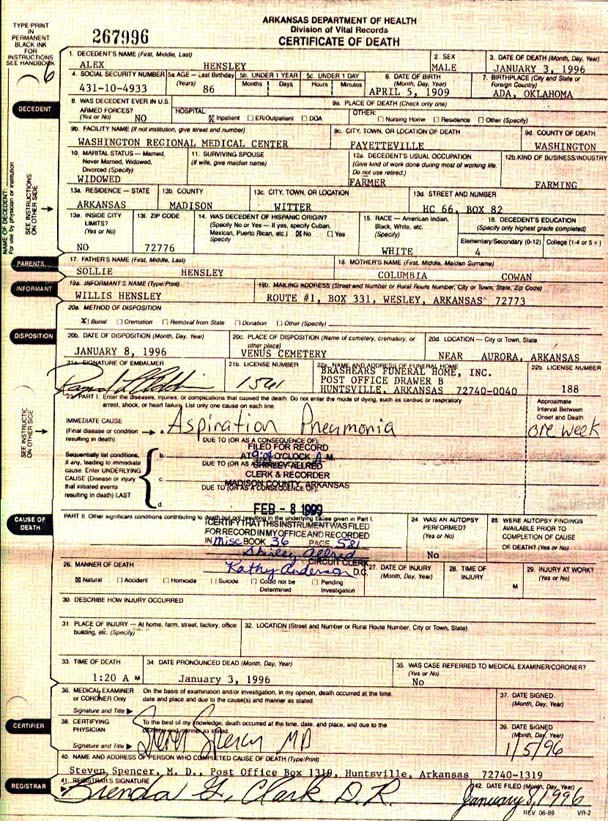 TYPE/PRINT IN PERMANENT BLACK INK FOR INSTRUCTIONS SEE HANDBOOK
6
267996
ARKANSAS DEPARTMENT OF HEALTH
Division of Vital Records
CERTIFICATE OF DEATH
1. DECEDENT'S NAME (First, Middle, Last)
ALEX HENSLEY
2. SEX
MALE
3. DATE OF DEATH (Month, Day, Year)
JANUARY 3, 1996
4. SOCIAL SECURITY NUMBER
431-10-4933
5a. AGE - Last Birthday (Years)
86
5b. UNDER 1 YEAR
Months Days
5c. UNDER 1 DAY
Hours Minutes
6. DATE OF BIRTH (Month, Day, Year)
APRIL 5, 1909
7. BIRTHPLACE (City and State or Foreign Country)
ADA, OKLAHOMA
DECEDENT
8. WAS DECEDENT EVER IN U.S. ARMED FORCES? (Yes or No)
NO
9a. PLACE OF DEATH (Check only one)
HOSPITAL: ☒ Inpatient ☐ ER/Outpatient ☐ DOA
OTHER: ☐ Nursing Home ☐ Residence ☐ Other (Specify)
9b. FACILITY NAME (If not institution, give street and number)
WASHINGTON REGIONAL MEDICAL CENTER
9c. CITY, TOWN, OR LOCATION OF DEATH
FAYETTEVILLE
9d. COUNTY OF DEATH
WASHINGTON
10. MARITAL STATUS - Married, Never Married, Widowed, Divorced (Specify)
WIDOWED
11. SURVIVING SPOUSE (If wife, give maiden name)
12a. DECEDENT'S USUAL OCCUPATION (Give kind of work done during most of working life. Do not use retired.)
FARMER
12b. KIND OF BUSINESS/INDUSTRY
FARMING
13a. RESIDENCE - STATE
ARKANSAS
13b. COUNTY
MADISON
13c. CITY, TOWN, OR LOCATION
WITTER
13d. STREET AND NUMBER
HC 66, BOX 82
13e. INSIDE CITY LIMITS? (Yes or No)
NO
13f. ZIP CODE
72776
14. WAS DECEDENT OF HISPANIC ORIGIN? (Specify No or Yes - If yes, specify Cuban, Mexican, Puerto Rican, etc.) ☒ No ☐ Yes
Specify
15. RACE - American Indian, Black, White, etc. (Specify)
WHITE
16. DECEDENT'S EDUCATION (Specify only highest grade completed)
Elementary/Secondary (0-12) College (1-4 or 5+)
4
NAME OF DECEDENT:
For use by physician or institution
SEE INSTRUCTIONS ON OTHER SIDE
PARENTS
17. FATHER'S NAME (First, Middle, Last)
SOLLIE HENSLEY
18. MOTHER'S NAME (First, Middle, Maiden Surname)
COLUMBIA COWAN
INFORMANT
19a. INFORMANT'S NAME (Type/Print)
WILLIS HENSLEY
19b. MAILING ADDRESS (Street and Number or Rural Route Number, City or Town, State, Zip Code)
ROUTE #1, BOX 331, WESLEY, ARKANSAS 72773
20a. METHOD OF DISPOSITION
☒ Burial ☐ Cremation ☐ Removal from State ☐ Donation ☐ Other (Specify)
DISPOSITION
20b. DATE OF DISPOSITION (Month, Day, Year)
JANUARY 8, 1996
20c. PLACE OF DISPOSITION (Name of cemetery, crematory, or other place)
VENUS CEMETERY
20d. LOCATION - City or Town, State
NEAR AURORA, ARKANSAS
21a. SIGNATURE OF EMBALMER
21b. LICENSE NUMBER
1541
22a. NAME AND ADDRESS OF FUNERAL HOME
BRASHEARS FUNERAL HOME, INC.
POST OFFICE DRAWER B
HUNTSVILLE, ARKANSAS 72740-0040
22b. LICENSE NUMBER
188
23. PART I. Enter the diseases, injuries, or complications that caused the death. Do not enter the mode of dying, such as cardiac or respiratory arrest, shock, or heart failure. List only one cause on each line.
Approximate Interval Between Onset and Death
SEE INSTRUCTIONS ON OTHER SIDE
IMMEDIATE CAUSE (Final disease or condition resulting in death)
a. Aspiration Pneumonia
one week
DUE TO (OR AS A CONSEQUENCE OF):
FILED FOR RECORD
AT 9:01 O'CLOCK A M.
Sequentially list conditions, if any, leading to immediate cause. Enter UNDERLYING CAUSE (Disease or injury that initiated events resulting in death) LAST
b.
DUE TO (OR AS A CONSEQUENCE OF):
SHIRLEY ALLRED
CLERK & RECORDER
c.
MADISON COUNTY, ARKANSAS
DUE TO (OR AS A CONSEQUENCE OF):
d.
FEB - 8 1999
CAUSE OF DEATH
PART II. Other significant conditions contributing to death but not resulting in the underlying cause given in Part I.
CERTIFY THAT THIS INSTRUMENT WAS FILED
FOR RECORD IN MY OFFICE AND RECORDED
IN Misc BOOK 36 PAGE 581
Shirley Allred
CIRCUIT CLERK
Kathy Anderson D.C.
24. WAS AN AUTOPSY PERFORMED? (Yes or No)
No
25. WERE AUTOPSY FINDINGS AVAILABLE PRIOR TO COMPLETION OF CAUSE OF DEATH? (Yes or No)
26. MANNER OF DEATH
☒ Natural ☐ Accident ☐ Homicide ☐ Suicide ☐ Could not be Determined ☐ Pending Investigation
27. DATE OF INJURY (Month, Day, Year)
28. TIME OF INJURY
M
29. INJURY AT WORK? (Yes or No)
30. DESCRIBE HOW INJURY OCCURRED
31. PLACE OF INJURY - At home, farm, street, factory, office building, etc. (Specify)
32. LOCATION (Street and Number or Rural Route Number, City or Town, State)
33. TIME OF DEATH
1:20 A M
34. DATE PRONOUNCED DEAD (Month, Day, Year)
January 3, 1996
35. WAS CASE REFERRED TO MEDICAL EXAMINER/CORONER? (Yes or No)
No
CERTIFIER
36. MEDICAL EXAMINER or CORONER Only
On the basis of examination and/or investigation, in my opinion, death occurred at the time, date and place and due to the cause(s) and manner as stated.
Signature and Title ▶
37. DATE SIGNED.
38. CERTIFYING PHYSICIAN
To the best of my knowledge, death occurred at the time, date, and place, and due to the cause(s) and manner as stated.
Signature and Title ▶ Steven Spencer MD
39. DATE SIGNED
1/5/96
40. NAME AND ADDRESS OF PERSON WHO COMPLETED CAUSE OF DEATH (Type/Print)
Steven Spencer, M. D., Post Office Box 1319, Huntsville, Arkansas 72740-1319
REGISTRAR
41. REGISTRAR'S SIGNATURE
Brenda G. Clark, D.R.
42. DATE FILED (Month, Day, Year)
January 8, 1996
REV. 06-89 VR-2